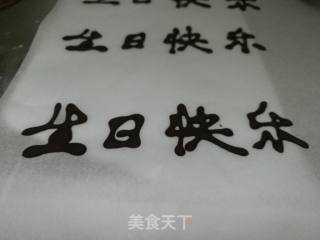 生日快乐
生日快乐
生日快乐
美食天下